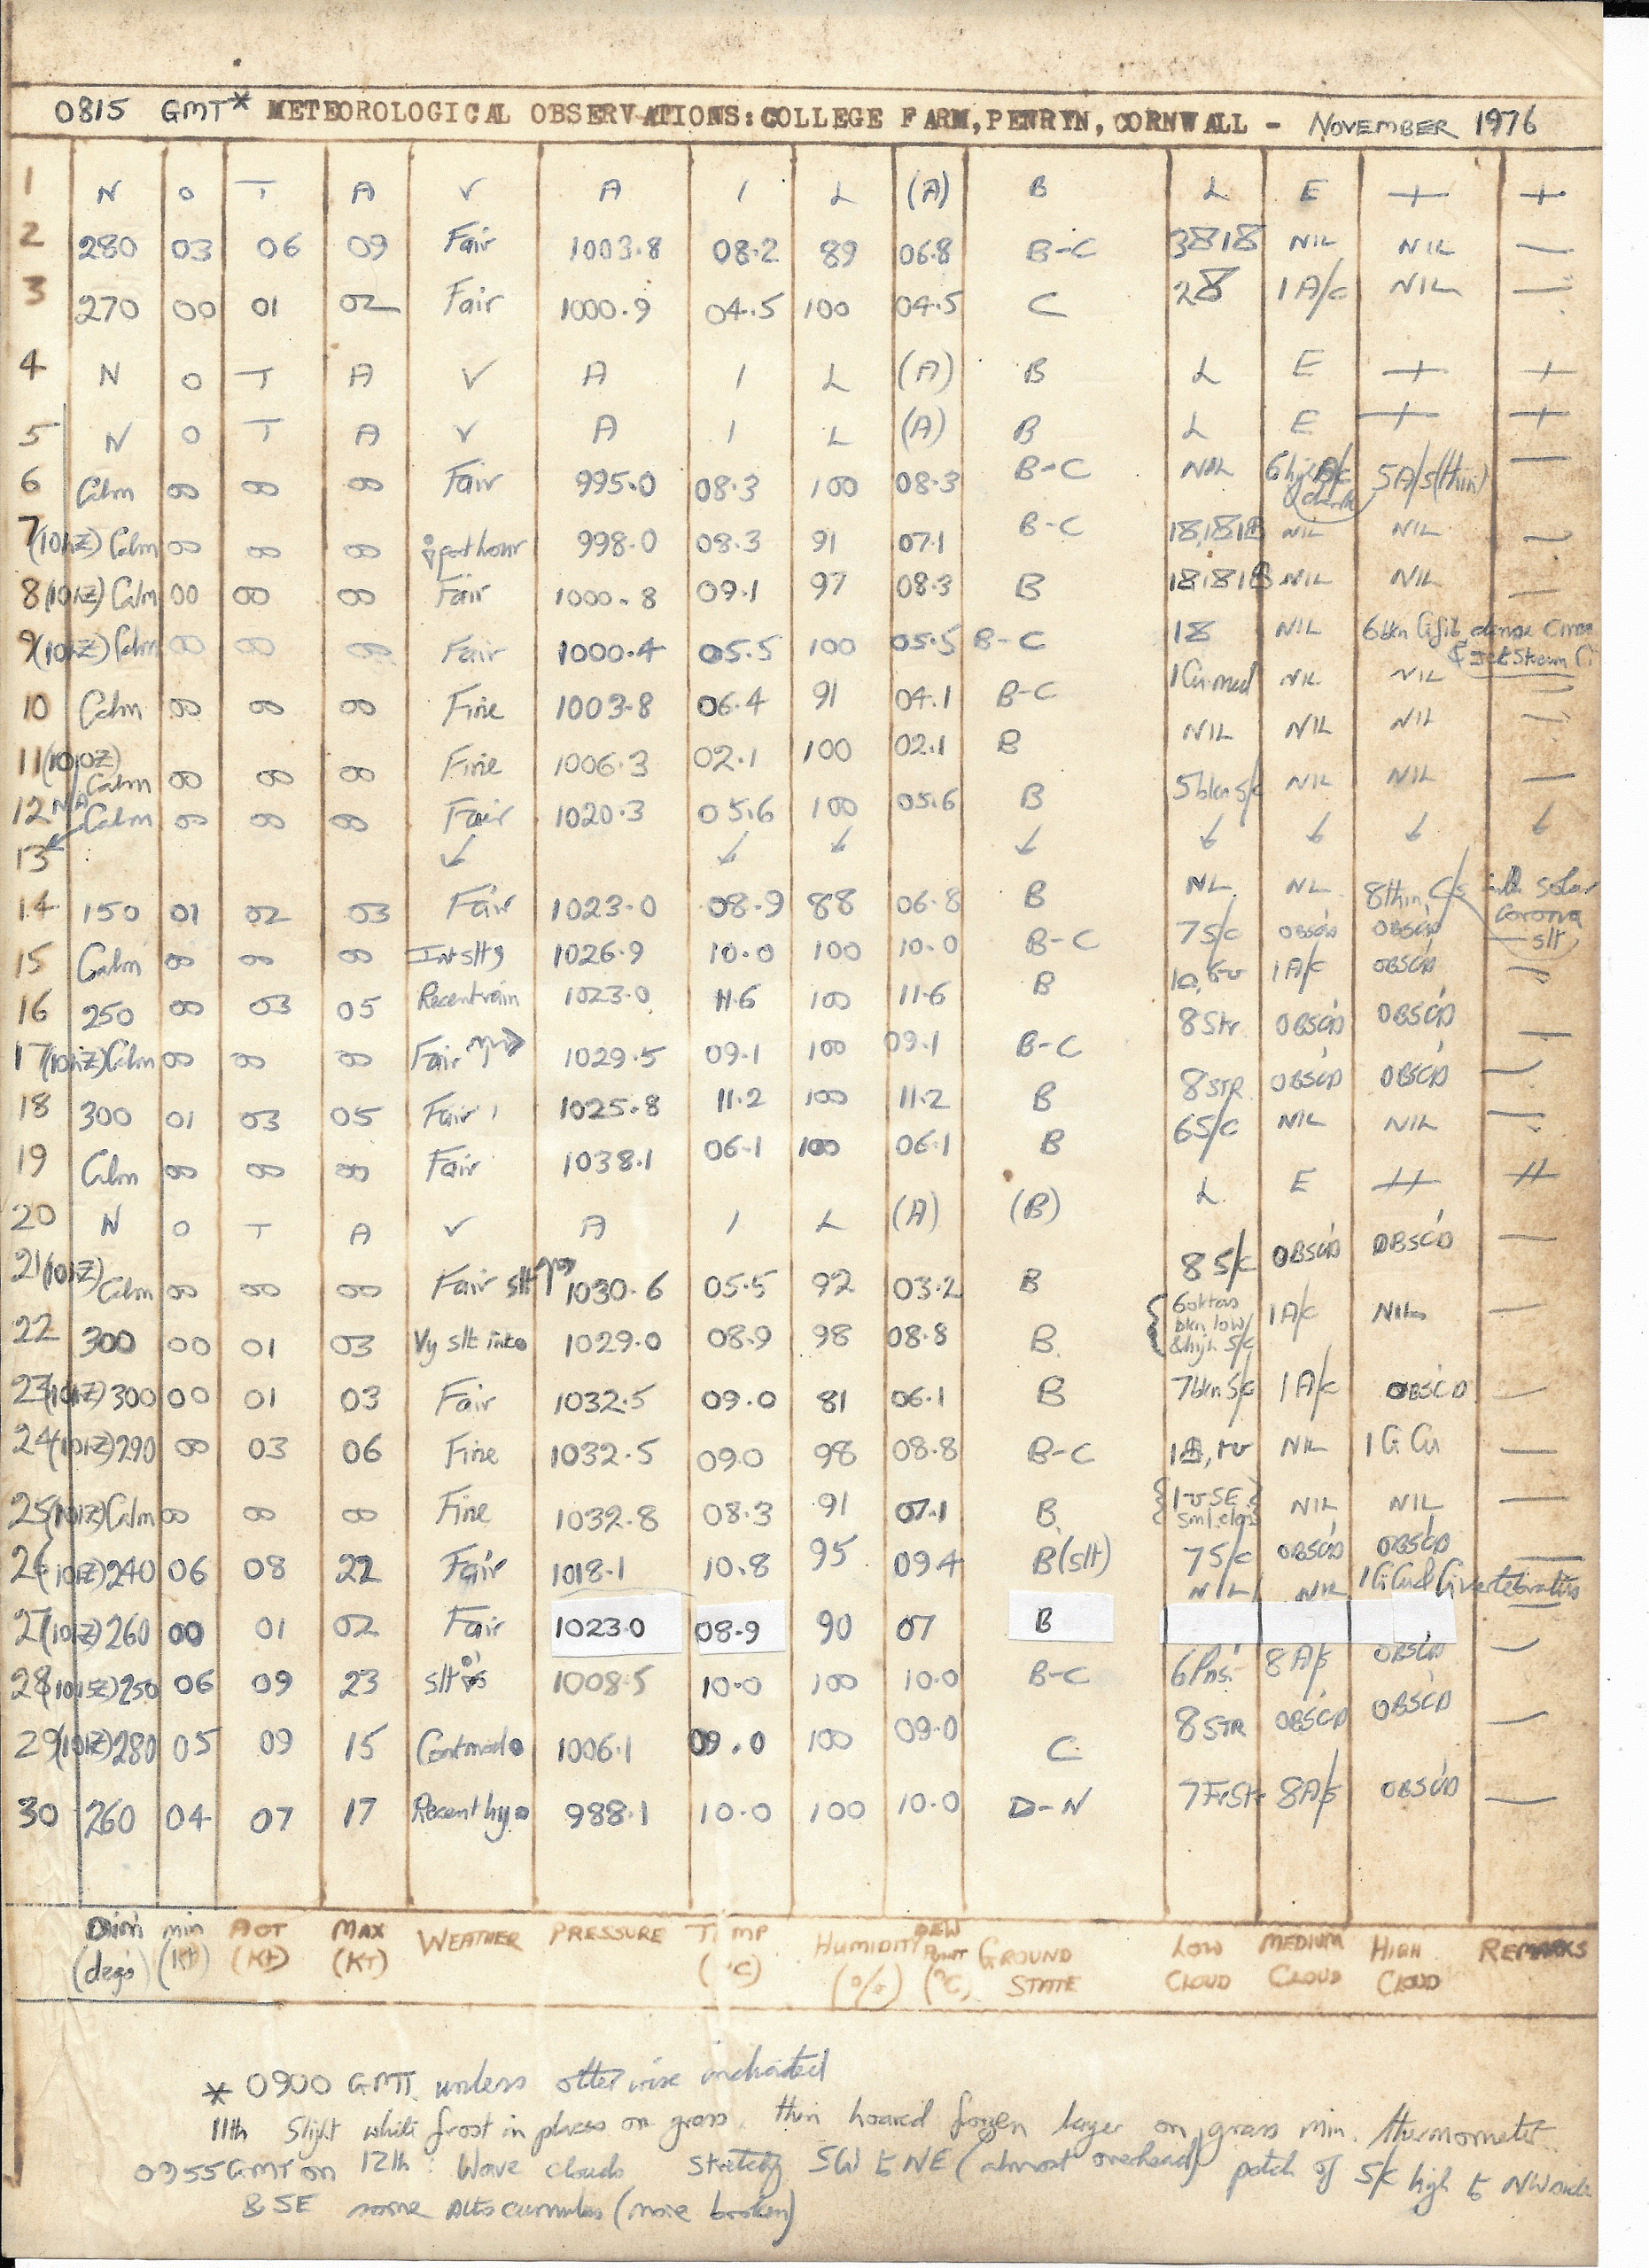 0815 GMT* METEOROLOGICAL OBSERVATIONS: COLLEGE FARM, PENRYN, CORNWALL - NOVEMBER 1976
1 N O T A V A I L (A) B L E + +
2 280 03 06 09 Fair 1003.8 08.2 89 06.8 B-C NIL NIL —
3 270 00 01 02 Fair 1000.9 04.5 100 04.5 C 1 A/c NIL —
4 N O T A V A I L (A) B L E + +
5 N O T A V A I L (A) B L E + +
6 Calm 00 00 00 Fair 995.0 08.3 100 08.3 B-C NIL 5 A/s (thin) —
7 (101Z) Calm 00 00 00 past hour 998.0 08.3 91 07.1 B-C NIL NIL —
8 (101Z) Calm 00 00 00 Fair 1000.8 09.1 97 08.3 B NIL NIL —
9 (101Z) Calm 00 00 00 Fair 1000.4 05.5 100 05.5 B-C NIL 6 bkn Ci fib, dense Cirrus & Jet Stream Ci
10 Calm 00 00 00 Fine 1003.8 06.4 91 04.1 B-C 1 Cu med NIL NIL —
11 (1010Z) Calm 00 00 00 Fine 1006.3 02.1 100 02.1 B NIL NIL NIL —
12 N/A Calm 00 00 00 Fair 1020.3 05.6 100 05.6 B 5 bkn S/c NIL NIL —
13
14 150 01 02 03 Fair 1023.0 08.9 88 06.8 B NIL NIL 8 thin C/s with solar corona
15 Calm 00 00 00 Int slt 1026.9 10.0 100 10.0 B-C 7 S/c OBSC'D OBSC'D — slt
16 250 00 03 05 Recent rain 1023.0 11.6 100 11.6 B 1 A/c OBSC'D —
17 (101Z) Calm 00 00 00 Fair 1029.5 09.1 100 09.1 B-C 8 Str OBSC'D OBSC'D —
18 300 01 03 05 Fair 1025.8 11.2 100 11.2 B 8 STR OBSC'D OBSC'D —
19 Calm 00 00 00 Fair 1038.1 06.1 100 06.1 B 6 S/c NIL NIL —
20 N O T A V A I L (A) (B) L E ++ ++
21 (101Z) Calm 00 00 00 Fair slt 1030.6 05.5 92 03.2 B 8 S/c OBSC'D OBSC'D —
22 300 00 01 03 Vy slt int 1029.0 08.9 98 08.8 B 6 oktas bkn low & high S/c 1 A/c NIL —
23 (101Z) 300 00 01 03 Fair 1032.5 09.0 81 06.1 B 7 bkn S/c 1 A/c OBSC'D —
24 (101Z) 290 00 03 06 Fine 1032.5 09.0 98 08.8 B-C NIL 1 Ci Cu —
25 (101Z) Calm 00 00 00 Fine 1032.8 08.3 91 07.1 B NIL NIL —
26 (101Z) 240 06 08 22 Fair 1018.1 10.8 95 09.4 B (slt) 7 S/c OBSC'D OBSC'D —
27 (101Z) 260 00 01 02 Fair 1023.0 08.9 90 07 B NIL NIL 1 Ci Cu & Ci vertebratus
28 (1015Z) 250 06 09 23 slt 1008.5 10.0 100 10.0 B-C 8 A/s OBSC'D —
29 (101Z) 280 05 09 15 Cont mod 1006.1 09.0 100 09.0 C 8 STR OBSC'D OBSC'D —
30 260 04 07 17 Recent hy 988.1 10.0 100 10.0 D-N 7 FrSt 8 A/s OBSC'D —
Dirn (degs) min (Kt) ACT (Kt) MAX (KT) WEATHER PRESSURE TEMP (°C) HUMIDITY (%) DEW POINT (°C) GROUND STATE LOW CLOUD MEDIUM CLOUD HIGH CLOUD REMARKS
* 0900 GMT unless otherwise indicated
11th Slight white frost in places on grass, thin hoared frozen layer on grass min. thermometer
0955 GMT on 12th: Wave clouds stretch SW to NE (almost overhead) patch of S/c high to NW side
& SE some Altocumulus (more broken)